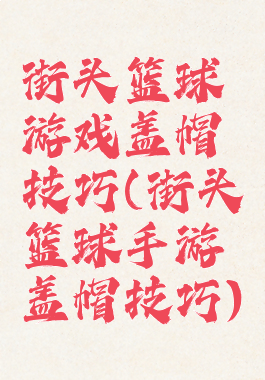 街头篮球
游戏盖帽
技巧(街头
篮球手游
盖帽技巧)